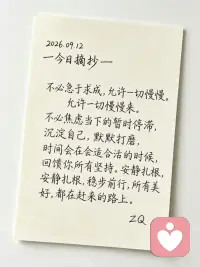 2026.09.12
一今日摘抄一
不必急于求成，允许一切慢慢，
允许一切慢慢来。
不必焦虑当下的暂时停滞，
沉淀自己，默默打磨，
时间会在会适合活的时候，
回馈你所有坚持。安静扎根，
安静扎根，稳步前行，所有美
好，都在赶来的路上。
ZQ